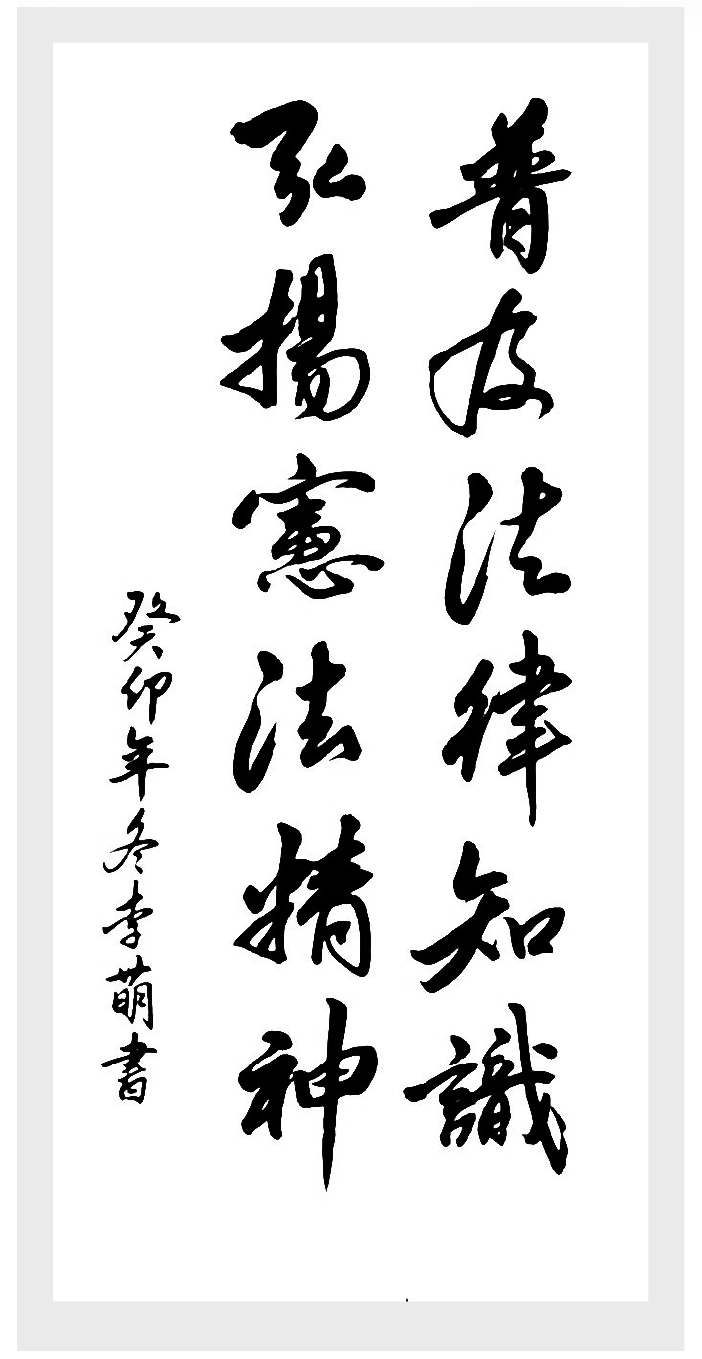 普及法律知識
弘揚憲法精神
癸卯年冬李萌書